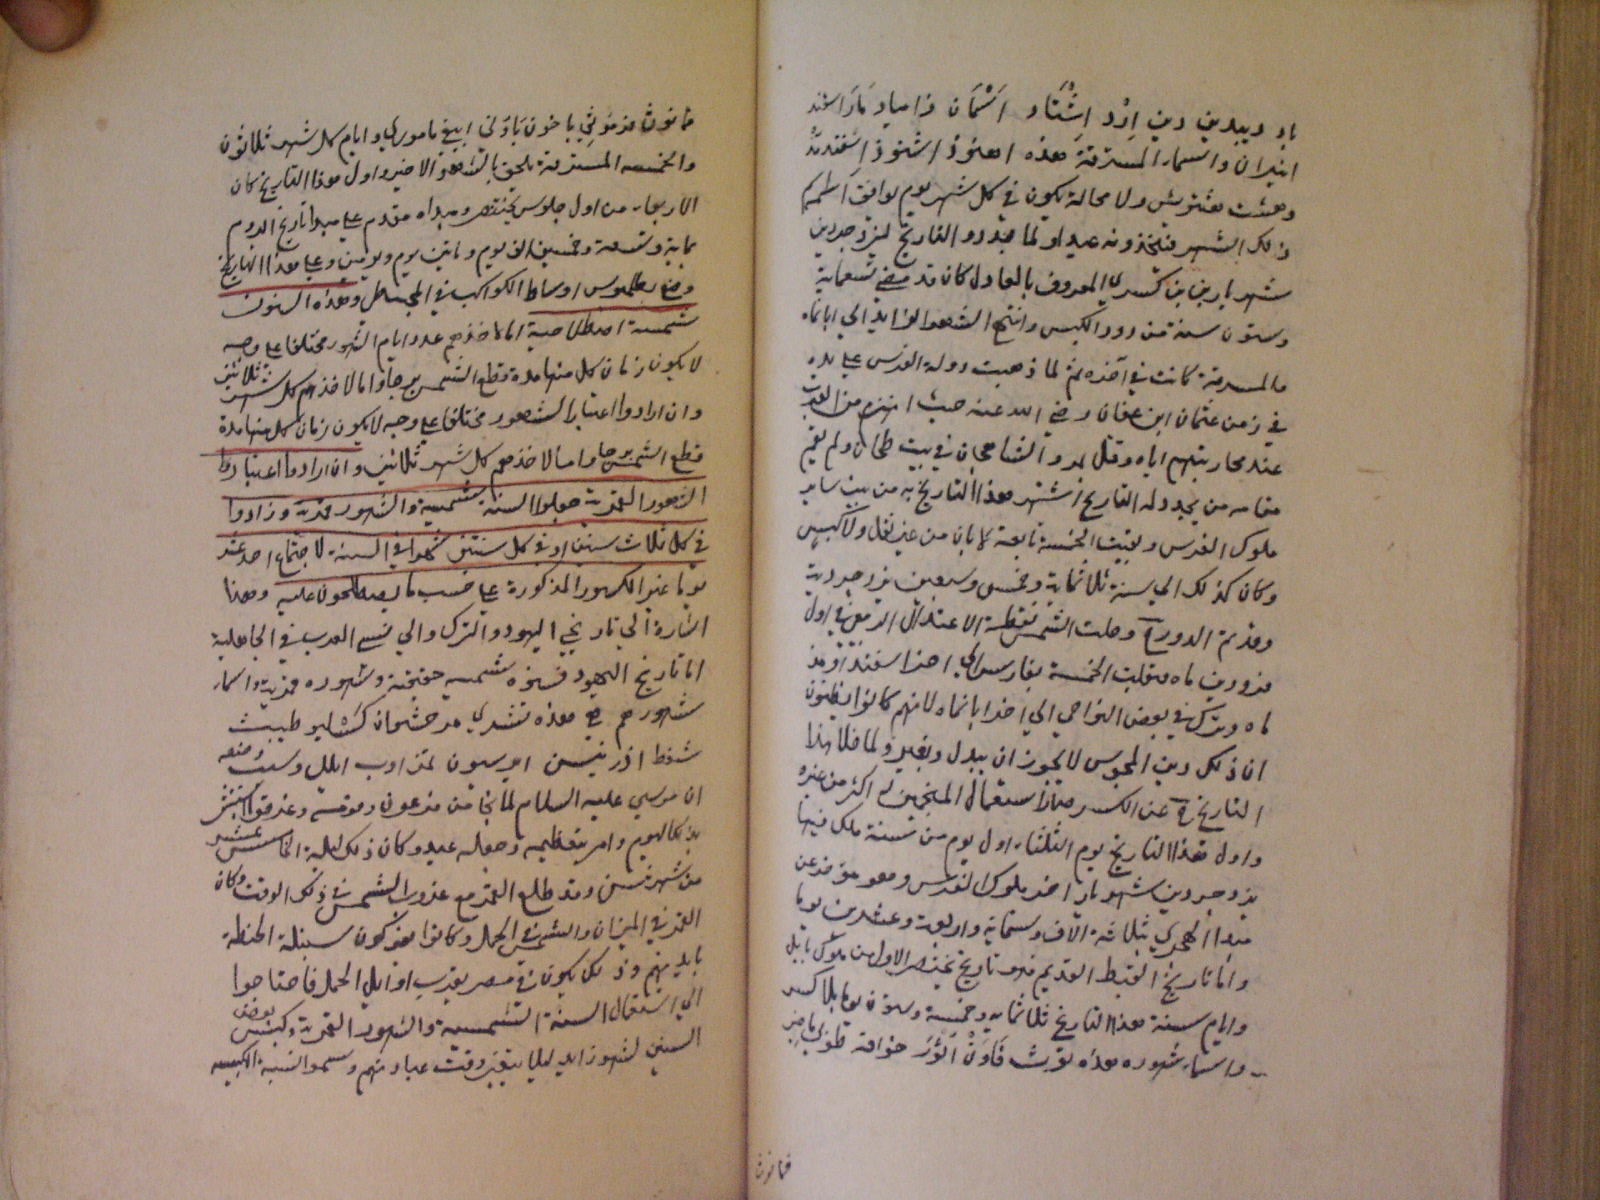 باد ديبدين دين اِرْد اشْتَاد اَسْمَان زامياد مَارَاسفند
انيران واسماء المسترقة هذه اهنوذ اشنوذ اسفندمذ
وهشت هشتويش ولا محالة يكون في كل شهر يوم يوافق اسمه اسم
ذلك الشهر فيتخذونه عيدا ولما جددو التاريخ ليزدجرد بن
شهريار بن كسري المعروف بالعادل كان قد مضي تسعماية
وستون سنة من دور الكبس وانتهي الشهر الزايد الي ابانماه
والمسترقة كانت في آخره ثم لما ذهبت دولة الفرس علي يده
في زمن عثمان ابن عفان رضي الله عنه حيث انهزم من العرب
عند محاربتهم اياه وقتل بمرو الشاهجان في بيت طحان ولم يقم
مقامه من يجدد له التاريخ اشتهر هذا التاريخ به من بين ساير
ملوك الفرس وبقيت الخمسة تابعة لابان من غير نقل ولا كبس
وكان كذلك الي سنة ثلاثماية وخمس وسبعين يزدجردية
وقد تم الدور وحلت الشمس نقطة الاعتدال الربيعي في اول
فروردين ماه ونقلت الخمسة بفارس الي اخر اسفندارمذ
ماه وترك في بعض النواحي الي اخر ابانماه لانهم كانوا يظنون
ان ذلك دين المجوس لا يجوز ان يبدل ويغير ولما خلا هذا
التاريخ عن الكسر صار استعمال المنجمين له اكثر من غيره
واول هذا التاريخ يوم الثلثاء اول يوم من سنة ملك فيها
يزدجرد بن شهريار اخر ملوك الفرس وهو مؤخر عن
مبدا الهجري بثلاثة الاف وستماية واربعة وعشرين يوما
واما تاريخ القبط القديم فهو تاريخ بختنصر الاول من ملوك بابل
وايام سنة هذا التاريخ ثلاثماية وخمسة وستون يوما بلا كسر
واسماء شهوره هذه توث فَاوَفْ اتُوْر خوافه طوبي ماخير
فانوث
فانوث فرموثي باخون بَاوَني ابيفي ماسوري وايام كل شهر ثلاثون
والخمسة المسترقة تلحق بالشهر الاخير واول هذا التاريخ كان
الاربعاء من اول جلوس بختنصر ومبداه مقدم علي مبدا تاريخ الروم
بماية وتسعة وخمسين الف يوم وماتين يوم ويومين وعلي هذا التاريخ
وضع بطلميوس اوساط الكواكب في المجسطي وهذه السنون
شمسية اصطلاحية اما لاخذهم عدد ايام الشهور مختلفا علي وجه
لا يكون زمان كل منها مدة قطع الشمس برجا واما لاخذهم كل شهر ثلاثين
وان ارادوا اعتبار الشهور مختلفا علي وجه لا يكون زمان كل منها مدة
قطع الشمس برجا واما لاخذهم كل شهر ثلاثين وان ارادوا اعتبار
الشهور القمرية جعلوا السنة شمسية والشهور قمرية وزادوا
في كل ثلاث سنين او في كل سنتين شهرا في السنة لاجتماع احد عشر
يوما غير الكسور المذكورة علي حسب ما يصطلحون عليه وهذا
اشارة الي تاريخي اليهود والترك والي نسي العرب في الجاهلية
اما تاريخ اليهود فسنوه شمسية حقيقية وشهوره قمرية واسماء
شهورهم هي هذه تشري مرحشوان كسليو طيبث
شفط اذر نيسن ايرسيون تمز اوب ايلل وسبب وضعه
ان موسي عليه السلام لما نجا من فرعون وقومه وغرقوا استبشر
بذلك اليوم وامر بتعظيمه وجعله عيدا وكان ذلك ليلة الخامس عشر
من شهر نيسن وقد طلع القمر مع غروب الشمس في ذلك الوقت وكان
القمر في الميزان والشمس في الحمل وكانوا يفركون سنبلة الحنطة
بايديهم وذلك يكون في مصر بقرب اوايل الحمل فاحتاجوا
الي استعمال السنة الشمسية والشهور القمرية وكبس بعض
السنين لشهر زايد ليلا يتغير وقت عبادتهم وسموا السنة الكبيسة